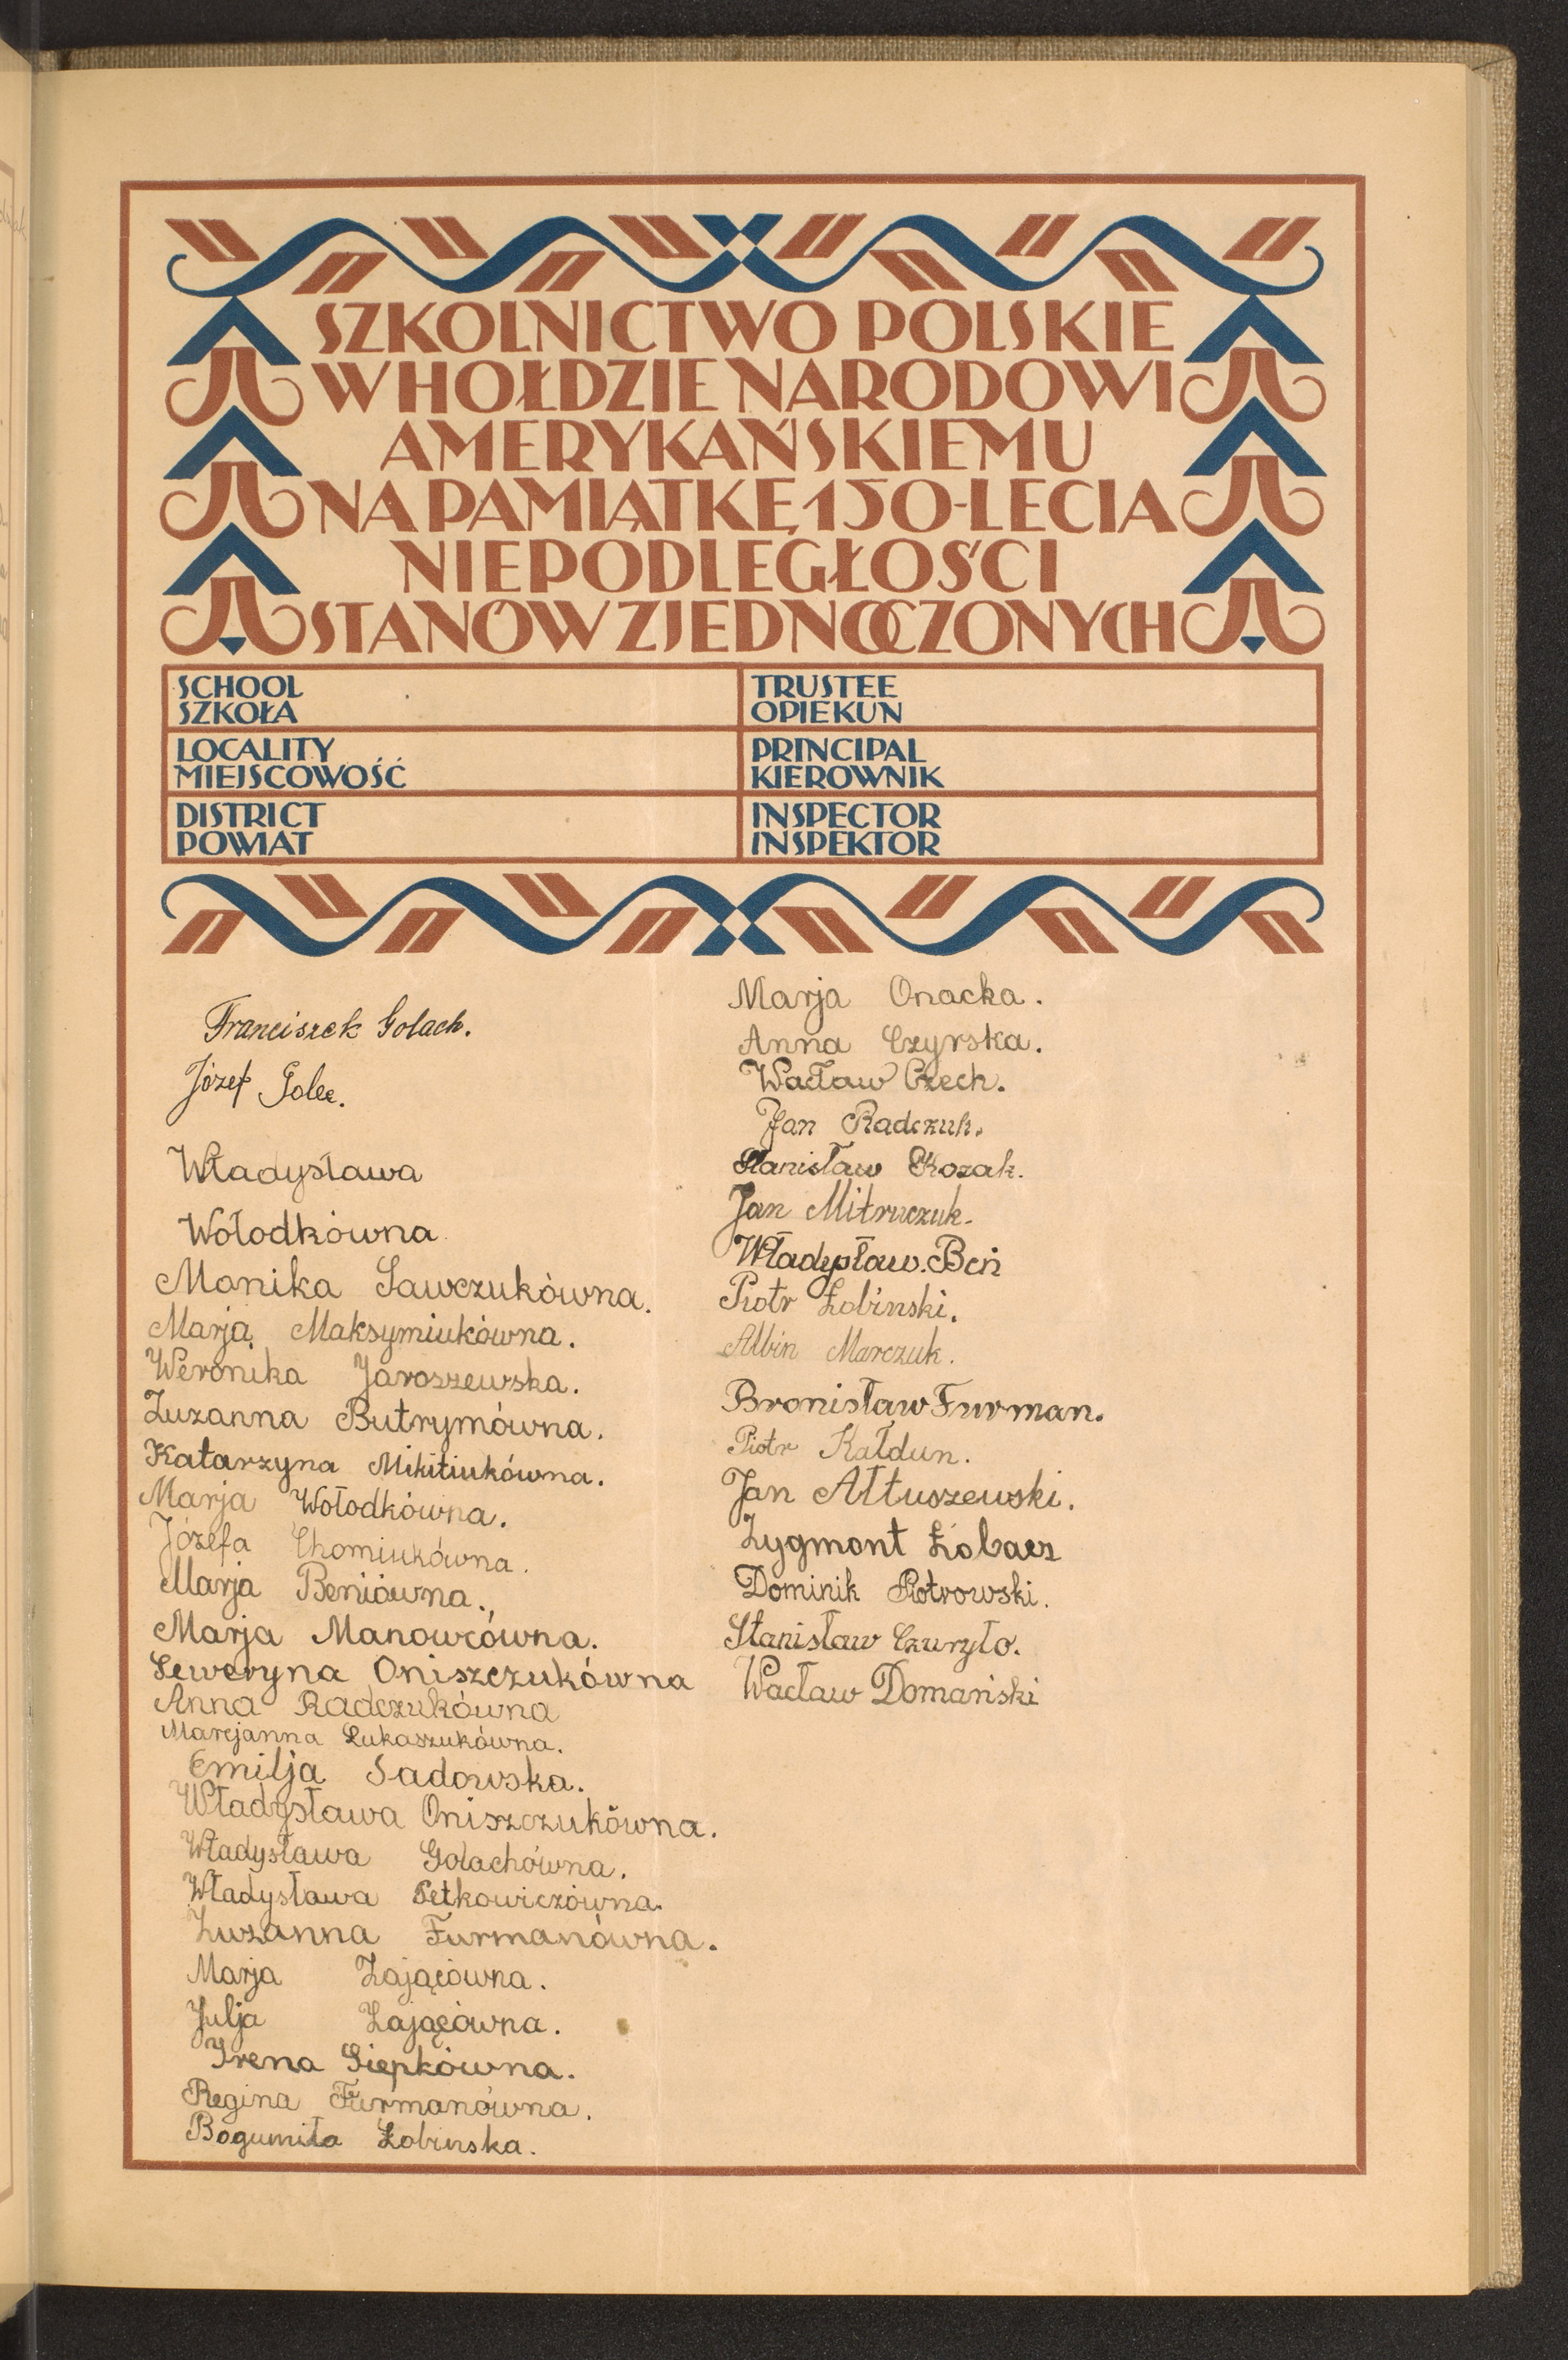 SZKOLNICTWO POLSKIE
W HOŁDZIE NARODOWI
AMERYKAŃSKIEMU
NA PAMIĄTKĘ 150-LECIA
NIEPODLEGŁOŚCI
STANÓW ZJEDNOCZONYCH
SCHOOL
SZKOŁA
TRUSTEE
OPIEKUN
LOCALITY
MIEJSCOWOŚĆ
PRINCIPAL
KIEROWNIK
DISTRICT
POWIAT
INSPECTOR
INSPEKTOR
Franciszek Golach.
Józef Golec.
Władysława
Wołodkówna
Monika Sawczukówna.
Marja Maksymiukówna.
Weronika Jaroszewska.
Zuzanna Butrymówna.
Katarzyna Mikitiukówna.
Marja Wołodkówna.
Józefa Chomiukówna.
Marja Beniówna.
Marja Manowcówna.
Seweryna Oniszczukówna
Anna Radczukówna
Marcjanna Łukaszukówna.
Emilja Sadowska.
Władysława Oniszczukówna.
Władysława Golachówna.
Władysława Petkowiczówna.
Zuzanna Furmanówna.
Marja Zającówna.
Julja Zającówna.
Irena Siepkówna.
Regina Furmanówna.
Bogumiła Łobinska.
Marja Onacka.
Anna Czyrska.
Wacław Czech.
Jan Radczuk.
Stanisław Kozak.
Jan Mitruczuk.
Władysław. Beń
Piotr Łobinski.
Albin Marczuk.
Bronisław Furman.
Piotr Kałdun.
Jan Ałtuszewski.
Zygmont Łobacz
Dominik Piotrowski.
Stanisław Czuryło.
Wacław Domański